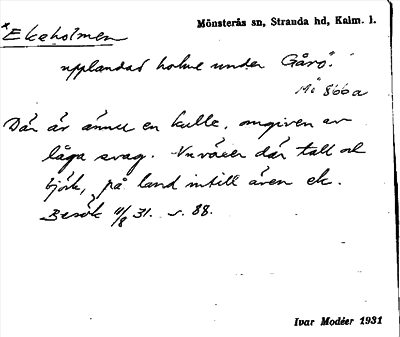 Mönsterås sn, Stranda hd, Kalm. l.
*Ekeholmen
upplandad holme under Gårö.
Mö 866a
Där är ännu en kulle, omgiven av
låga svag. Nu växer där tall och
björk, på land intill även ek.
Besök 11/8 31. s. 88.
Ivar Modéer 1931